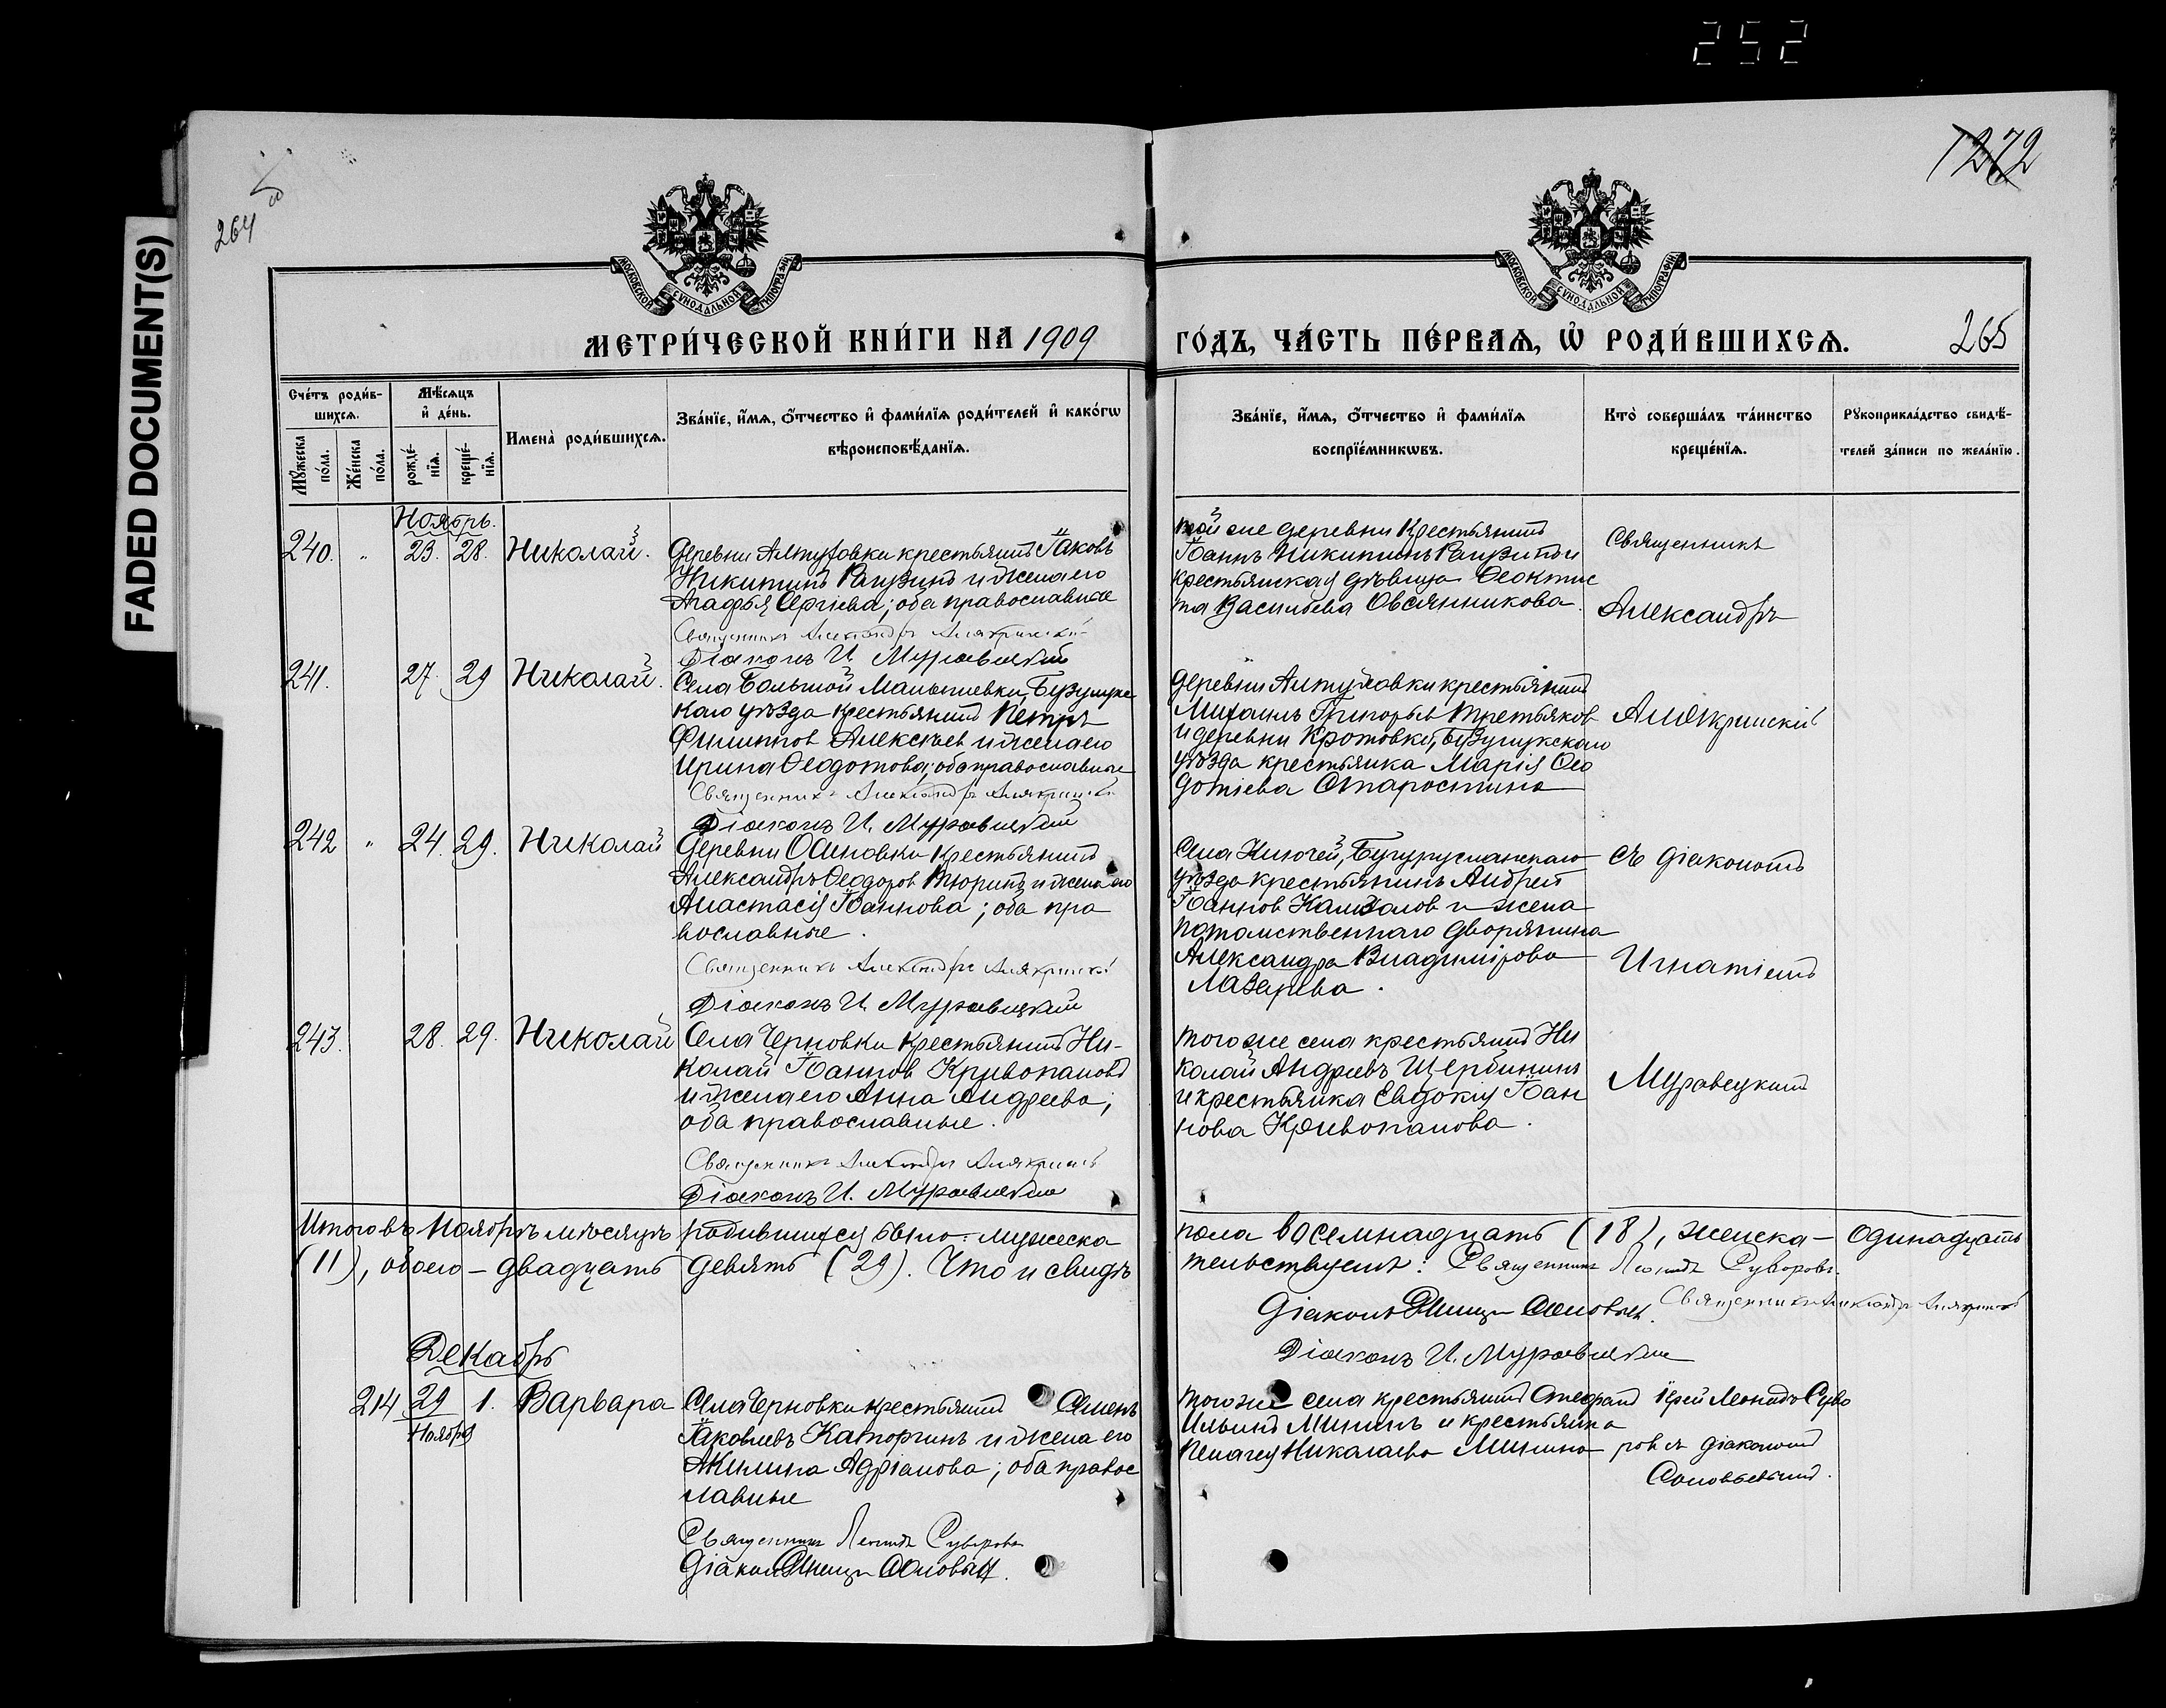 252
FADED DOCUMENT(S)
264
1272
МОСКОВСКОЙ СѴНОДАЛЬНОЙ ТИПОГРАФІИ
МОСКОВСКОЙ СѴНОДАЛЬНОЙ ТИПОГРАФІИ
МЕТРИ́ЧЕСКОЙ КНИ́ГИ НА 1909
ГО́ДЪ, ЧА́СТЬ ПЕ́РВАѦ, Ѽ РОДИ́ВШИХСѦ.
265
Сче́тъ роди́в-
шихсѧ.
Мꙋ́жеска по́ла.
Же́нска по́ла.
Мѣ́сѧцъ
и҆ де́нь.
рожде́-
нїѧ.
креще́-
нїѧ.
Имена̀ роди́вшихсѧ.
Зва́нїе, и҆́мѧ, ѻ҆́тчество и҆ фами́лїѧ роди́телей и҆ како́гѡ
вѣроисповѣ́данїѧ.
Зва́нїе, и҆́мѧ, ѻ҆́тчество и҆ фами́лїѧ
воспрїе́мникѡвъ.
Кто̀ соверша́лъ та́инство
креще́нїѧ.
Рꙋкоприкла́дство свидѣ́-
телей за́писи по жела́нїю.
Ноябрь.
240. " 23. 28. Николай.
Деревни Алтуховки крестьянинъ Іаковъ
Никитинъ Рагузинъ и жена его
Агафья Сергіева; оба православные
Священникъ Александръ Алякринскій
Діаконъ И. Муравецкий
той же деревни Крестьянинъ
Іоаннъ Никитинъ Рагузинъ и
крестьянская дѣвица Ѳеоктис
та Васильева Овсянникова.
Священникъ
Александръ
241. 27. 29 Николай.
Села Большой Малышевки, Бузулукс
каго уѣзда крестьянинъ Петръ
Филиппов Алексѣев и жена его
Ирина Ѳеодотова; оба православные
Священникъ Александръ Алякринскій
Діаконъ И. Муравецкий
деревни Алтуховки крестьянинъ
Михаилъ Григорьев Третьяков
и деревни Кротовки, Бузулукскаго
уѣзда крестьянка Марія Ѳео
дотіева Старостина
Алякринскій
242 " 24. 29. Николай
Деревни Осиновки Крестьянинъ
Александръ Ѳеодоров Тюринъ и жена его
Анастасія Іоаннова; оба пра
вославные.
Священникъ Александръ Алякринскій
Діаконъ И. Муравецкий
Села Ключей, Бугурусланскаго
уѣзда крестьянинъ Андрей
Іоаннов Камзолов и жена
потомственнаго дворянина
Александра Владимірова
Лазарева.
съ діакономъ
Игнатіемъ
243. 28. 29. Николай
Села Черновки крестьянинъ Ни-
колай Іоаннов Кривопаловъ
и жена его Анна Андреева;
оба православные.
Священникъ Александръ Алякринскій
Діаконъ И. Муравецкий
того же села крестьянинъ Ни
колай Андреевъ Щербининъ
и крестьянка Евдокія Іоан
нова Кривопалова.
Муравецкимъ
Итого въ Ноябрѣ мѣсяцѣ родившихся было: мужеска
пола восемнадцать (18), женска — одинадцать
(11), обоего — двадцать девять (29). Что и свидѣ
тельствуемъ: Священникъ Леонидъ Суворовъ.
Священникъ Александръ Алякринскій
Діаконъ И. Муравецкий
Декабрь
214 29 1. Варвара
Ноября
Села Черновки крестьянинъ Семенъ
Іаковлевъ Каторгинъ и жена его
Акилина Адріанова; оба правос
лавные
Священникъ Леонидъ Суворовъ
того же села крестьянинъ Стефанъ
Ильинъ Мининъ и крестьянка
Пелагея Николаева Минина
Іерей Леонидъ Суво
ров съ діакономъ
Соловьевымъ.